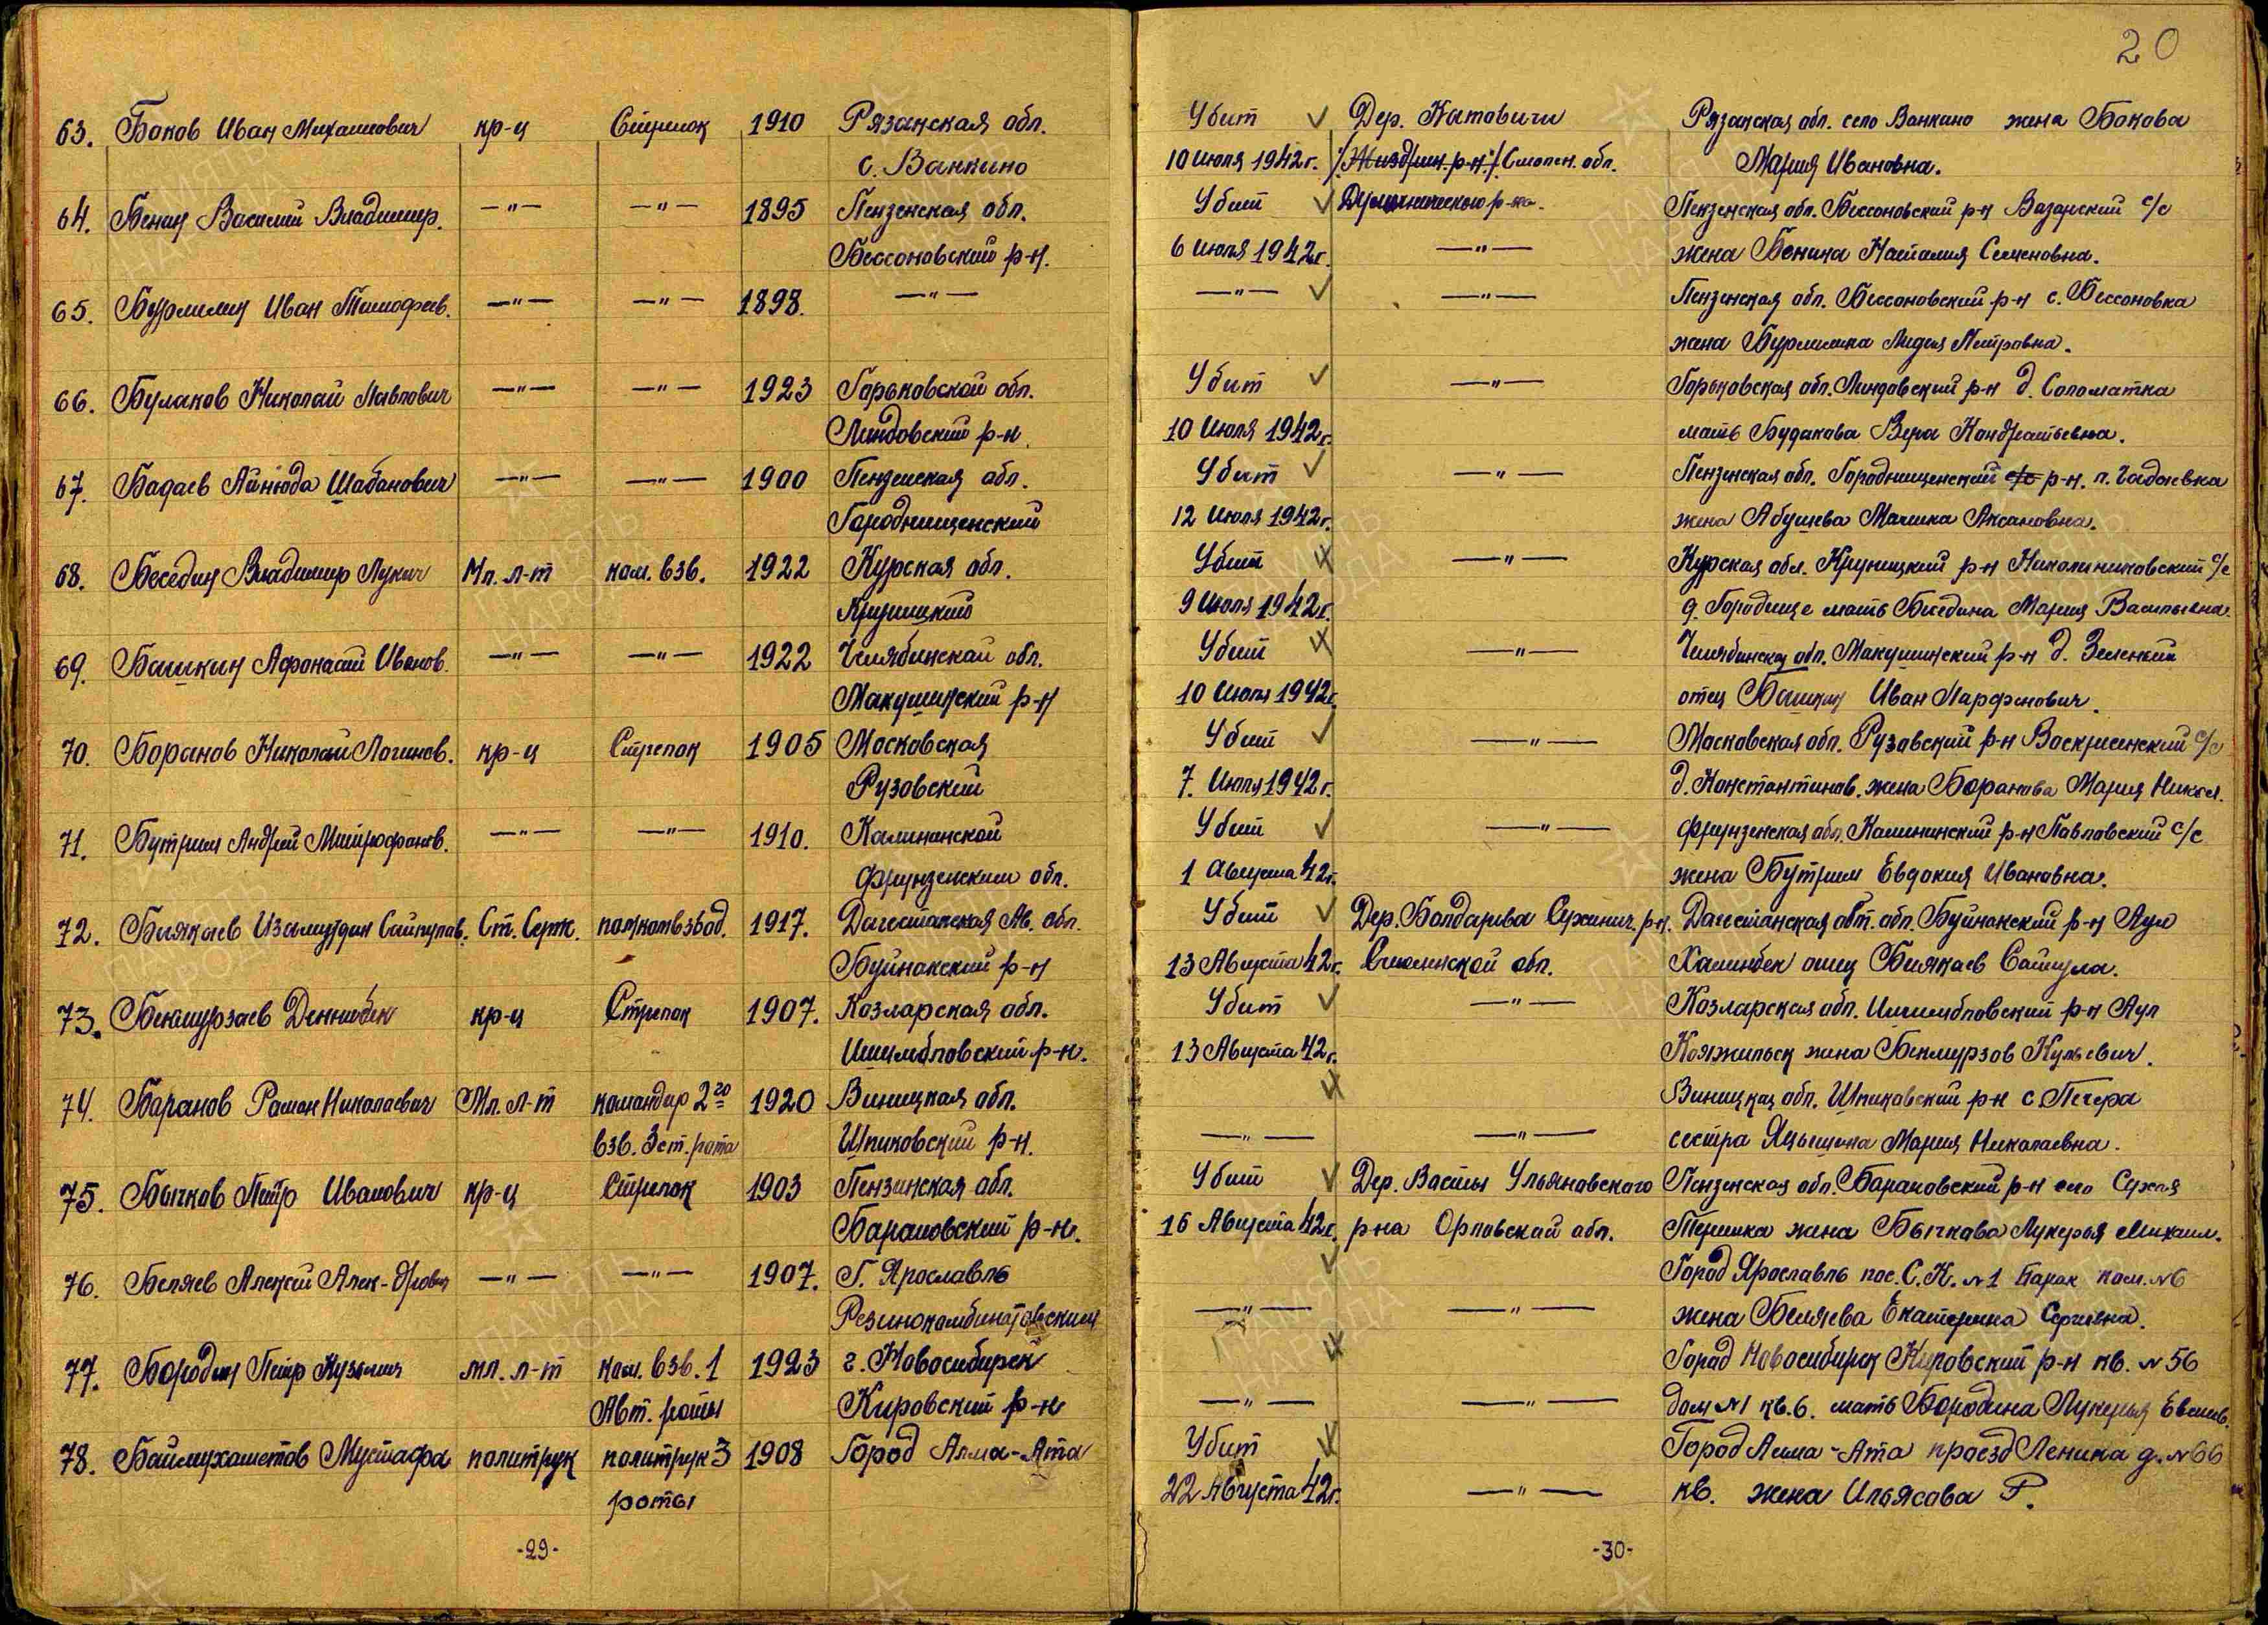 20
63. Баков Иван Михайлович кр-ц Стрелок 1910 Рязанская обл. Убит Дер. Катовичи Рязанская обл. село Ванкино жена Бакова
с. Ванкино 10 июля 1942г. /Жиздрин. р-н/ Смолен. обл. Мария Ивановна.
64. Бенин Василий Владимир. —"— —"— 1895 Пензенская обл. Убит р-на. Пензенская обл. Бессоновский р-н Вазерский с/с
Бессоновский р-н. 6 июля 1942г. —"— жена Бенина Наталия Семеновна.
65. Бурмин Иван Тимофеев. —"— —"— 1898. —"— —"— —"— Пензенская обл. Бессоновский р-н с. Бессоновка
жена Лидия Петровна.
66. Булаков Николай Павлович —"— —"— 1923 Горьковской обл. Убит —"— Горьковская обл. Линдовский р-н д. Соломатка
Линдовский р-н. 10 Июля 1942г. мать Будакова Вера Кондратьевна.
67. Бадаев Айнюда Шабанович —"— —"— 1900 Пензенская обл. Убит —"— Пензенская обл. Городнищенский с/с р-н. п. Чадаевка
Городнищенский 12 Июля 1942г. жена Абушева Аксановна.
68. Беседин Владимир Лукич Мл. л-т ком. взв. 1922 Курская обл. Убит —"— Курская обл. р-н с/с
9 Июля 1942г. д. Городище мать Беседина Мария Васильевна.
69. Башкин Афонасий Иванов. —"— —"— 1922 Челябинской обл. Убит —"— Челябинской обл. Макушинский р-н д.
Макушинский р-н 10 Июля 1942г. отец Башкин Иван Парфенович.
70. Боранов Николай Логинов. кр-ц Стрелок 1905 Московская Убит —"— Московская обл. Рузовский р-н Воскресенский с/с
Рузовский 7. Июля 1942г. д. Константинов. жена Боранова Мария Никол.
71. Бутрим Андрей Митрофанов. —"— —"— 1910. Калининской Убит —"— Фрунзенская обл. Калининский р-н Павловский с/с
Фрунзенский обл. 1 Августа 42г. жена Бутрим Евдокия Ивановна.
72. Биякаев Изамутдин Ст. Серж. помкомвзвод. 1917. Дагестанская Ав. обл. Убит Дер. Болдарева Сухинич. р-н. Дагестанская авт. обл. Буйнакский р-н Аул
Буйнакский р-н 13 Августа 42г. Смоленской обл. Халимбек отец Биякаев
73. Бекмурзаев кр-ц Стрелок 1907. Козларская обл. Убит —"— Козларская обл. р-н Аул
р-н. 13 Августа 42г. жена Бекмурзов
74. Баранов Роман Николаевич Мл. л-т командир 2го 1920 Виницкая обл. Виницкая обл. Шпиковский р-н с. Печера
взв. 3 ст. рота Шпиковский р-н. —"— —"— сестра Мария Николаевна.
75. Бычков Петр Иванович кр-ц Стрелок 1903 Пензинская обл. Убит Дер. Васты Ульяновского Пензенская обл. Барановский р-н село Сухая
Барановский р-н. 16 Августа 42г. р-на Орловской обл. Терешка жена Бычкова Лукерья Михаил.
76. Беляев Алексей Алек-дрович —"— —"— 1907. Г. Ярославль Город Ярославль пос. С.К. №1 Барак ком. №6
Резинокомбинатовский —"— —"— жена Беляева Екатерина Сергеевна.
77. Бородин Петр Кузьмич мл. л-т ком. взв. 1 1923 г. Новосибирск Город Новосибирск Кировский р-н кв. №56
Авт. роты Кировский р-н —"— —"— дом №1 кв. 6. мать Бородина Лукерья
78. Баймухаметов Мустафа политрук политрук 3 1908 Город Алма-Ата Убит Город Алма-Ата проезд Ленина д. №66
роты 22 Августа 42г. —"— кв. жена Ильясова Р.
-29-
-30-